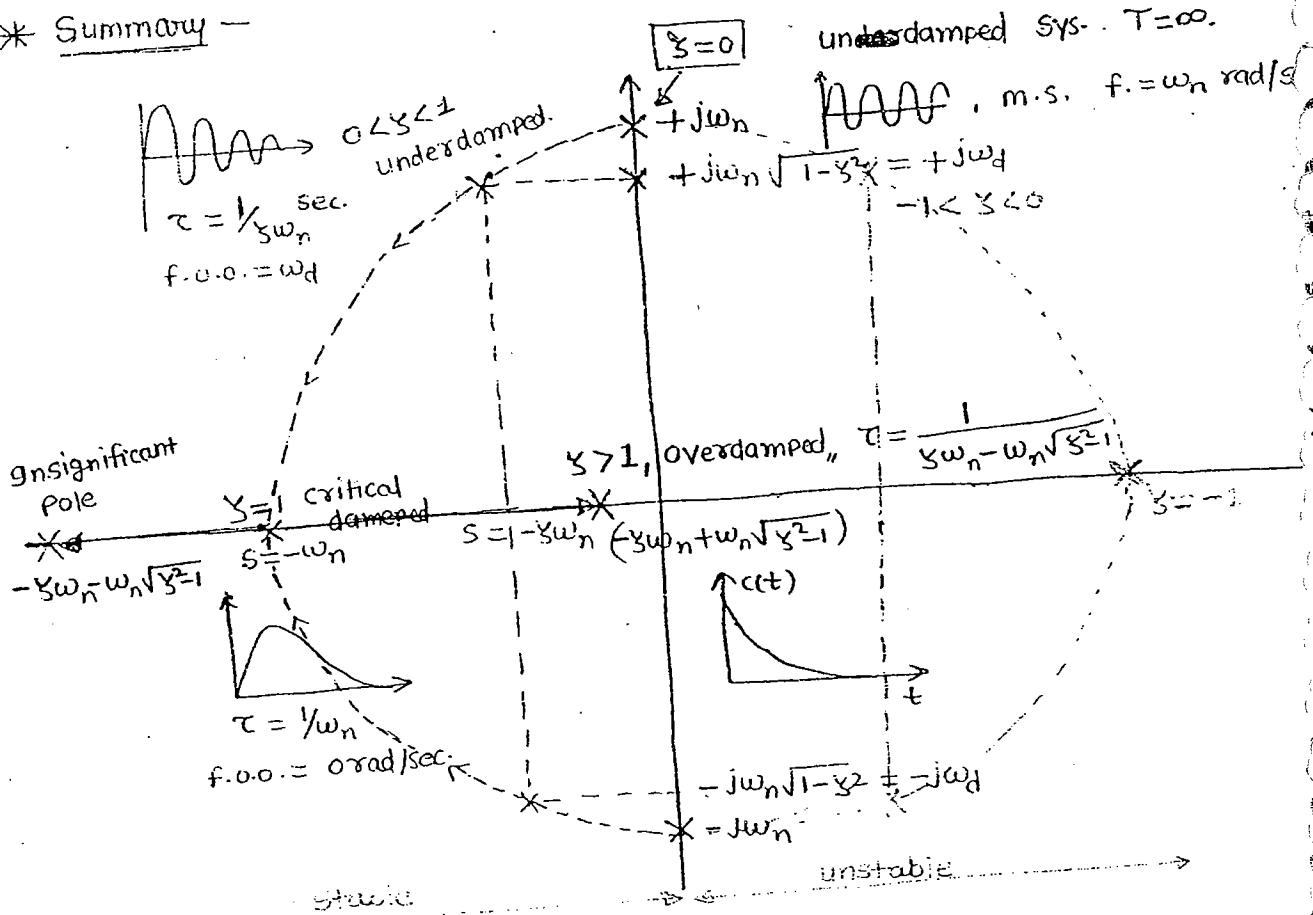 * Summary -
ξ=0
undamped sys. . T=∞.
, m.s. f.=ωn rad/s
0<ξ<1
underdamped.
τ = 1/ξωn sec.
f.o.o. = ωd
+jωn
+jωn√1-ξ² = +jωd
-1< ξ <0
Insignificant
pole
-ξωn-ωn√ξ²-1
ξ=1 critical
damped
s=-ωn
ξ>1, overdamped,, τ = 1/ξωn-ωn√ξ²-1
s=-ξωn (-ξωn+ωn√ξ²-1)
ξ=-1
τ = 1/ωn
f.o.o. = 0rad/sec.
c(t)
t
-jωn√1-ξ² = -jωd
-jωn
stable
unstable